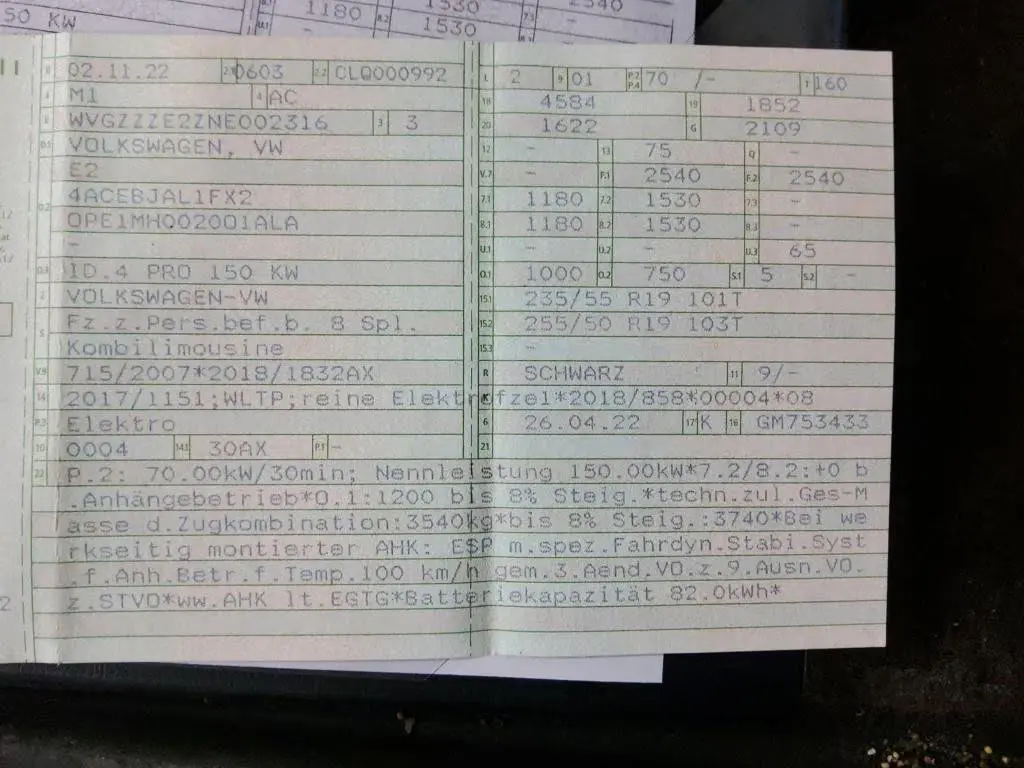 50 KW
1180
1530
2540
1530
B 02.11.22 2.1 0603 2.2 CLQ000992
J M1 4 AC
E WVGZZZE2ZNE002316 3 3
D.1 VOLKSWAGEN, VW
E2
D.2 4ACEBJAL1FX2
OPE1MH002001ALA
-
D.3 ID.4 PRO 150 KW
2 VOLKSWAGEN-VW
5 Fz.z.Pers.bef.b. 8 Spl.
Kombilimousine
V.9 715/2007*2018/1832AX
14 2017/1151;WLTP;reine Elektrofzel
P.3 Elektro
10 0004 14.1 30AX P.1 -
L 2 9 01 P.2 P.4 70 /- T 160
18 4584 19 1852
20 1622 G 2109
12 - 13 75 Q -
V.7 - F.1 2540 F.2 2540
7.1 1180 7.2 1530 7.3 -
8.1 1180 8.2 1530 8.3 -
U.1 - U.2 - U.3 65
O.1 1000 O.2 750 S.1 5 S.2 -
15.1 235/55 R19 101T
15.2 255/50 R19 103T
15.3 -
R SCHWARZ 11 9/-
K *2018/858*00004*08
6 26.04.22 17 K 16 GM753433
21
22 P.2: 70.00kW/30min; Nennleistung 150.00kW*7.2/8.2:+0 b
.Anhängebetrieb*O.1:1200 bis 8% Steig.*techn.zul.Ges-M
asse d.Zugkombination:3540kg*bis 8% Steig.:3740*Bei we
rkseitig montierter AHK: ESP m.spez.Fahrdyn.Stabi.Syst
.f.Anh.Betr.f.Temp.100 km/h gem.3.Aend.VO.z.9.Ausn.VO.
z.STVO*ww.AHK lt.EGTG*Batteriekapazität 82.0kWh*